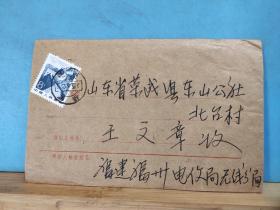 山东省荣成县东山公社
北台村
王文章收
福建福州电信局